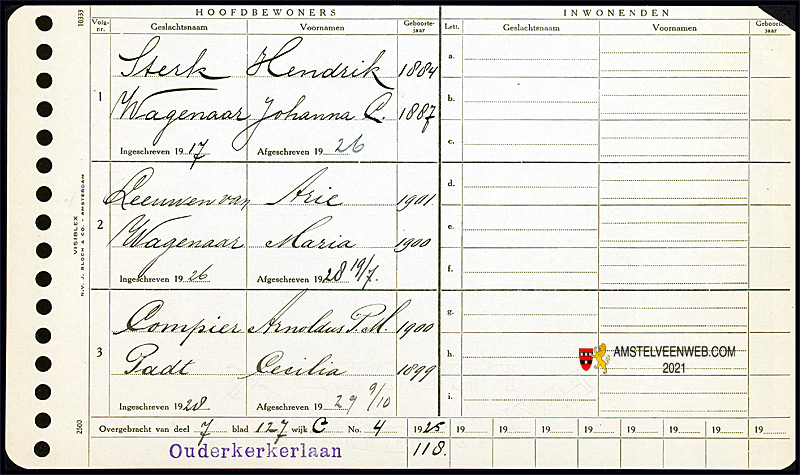 HOOFDBEWONERS INWONENDEN
Volg-nr. Geslachtsnaam Voornamen Geboorte-jaar Lett. Geslachtsnaam Voornamen Geboorte-jaar
10333
1
Sterk Hendrik 1884 a.
Wagenaar Johanna C. 1887 b.
Ingeschreven 1917 Afgeschreven 1926 c.
2
Leeuwen van Arie 1901 d.
Wagenaar Maria 1900 e.
Ingeschreven 1926 Afgeschreven 1928 19/7. f.
VISIBLEX
N.V. J. BLOCH & CO. - AMSTERDAM
3
Compier Arnoldus P.M. 1900 g.
Padt Cecilia 1899 h.
Ingeschreven 1928 Afgeschreven 1929 9/10 i.
AMSTELVEENWEB.COM
2021
2500
Overgebracht van deel 7 blad 127 wijk C No. 4 1925 19 19 19 19 19 19 19 19
Ouderkerkerlaan 118.